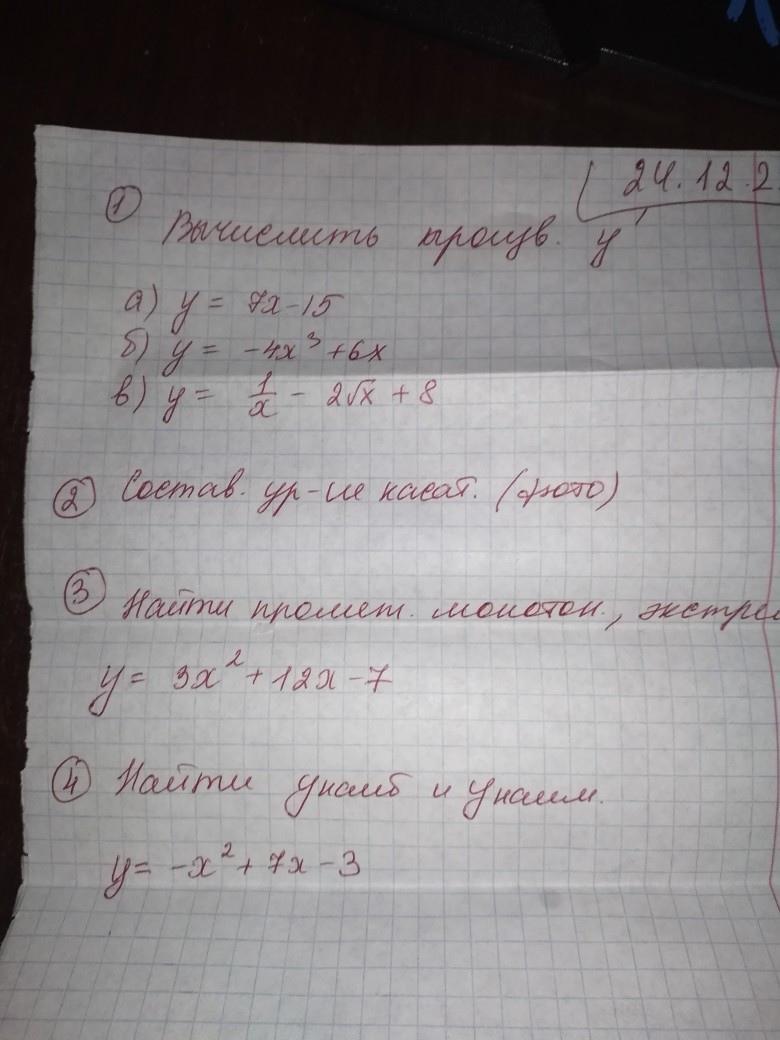 24.12.2
① Вычислить произв. y'
а) y = 7x-15
б) y = -4x³ +6x
в) y = 1/x - 2√x + 8
② Состав. ур-ие касат. (фото)
③ Найти промеж. монотон., экстрем
y = 3x² + 12x - 7
④ Найти yнаиб и yнаим.
y = -x² + 7x - 3